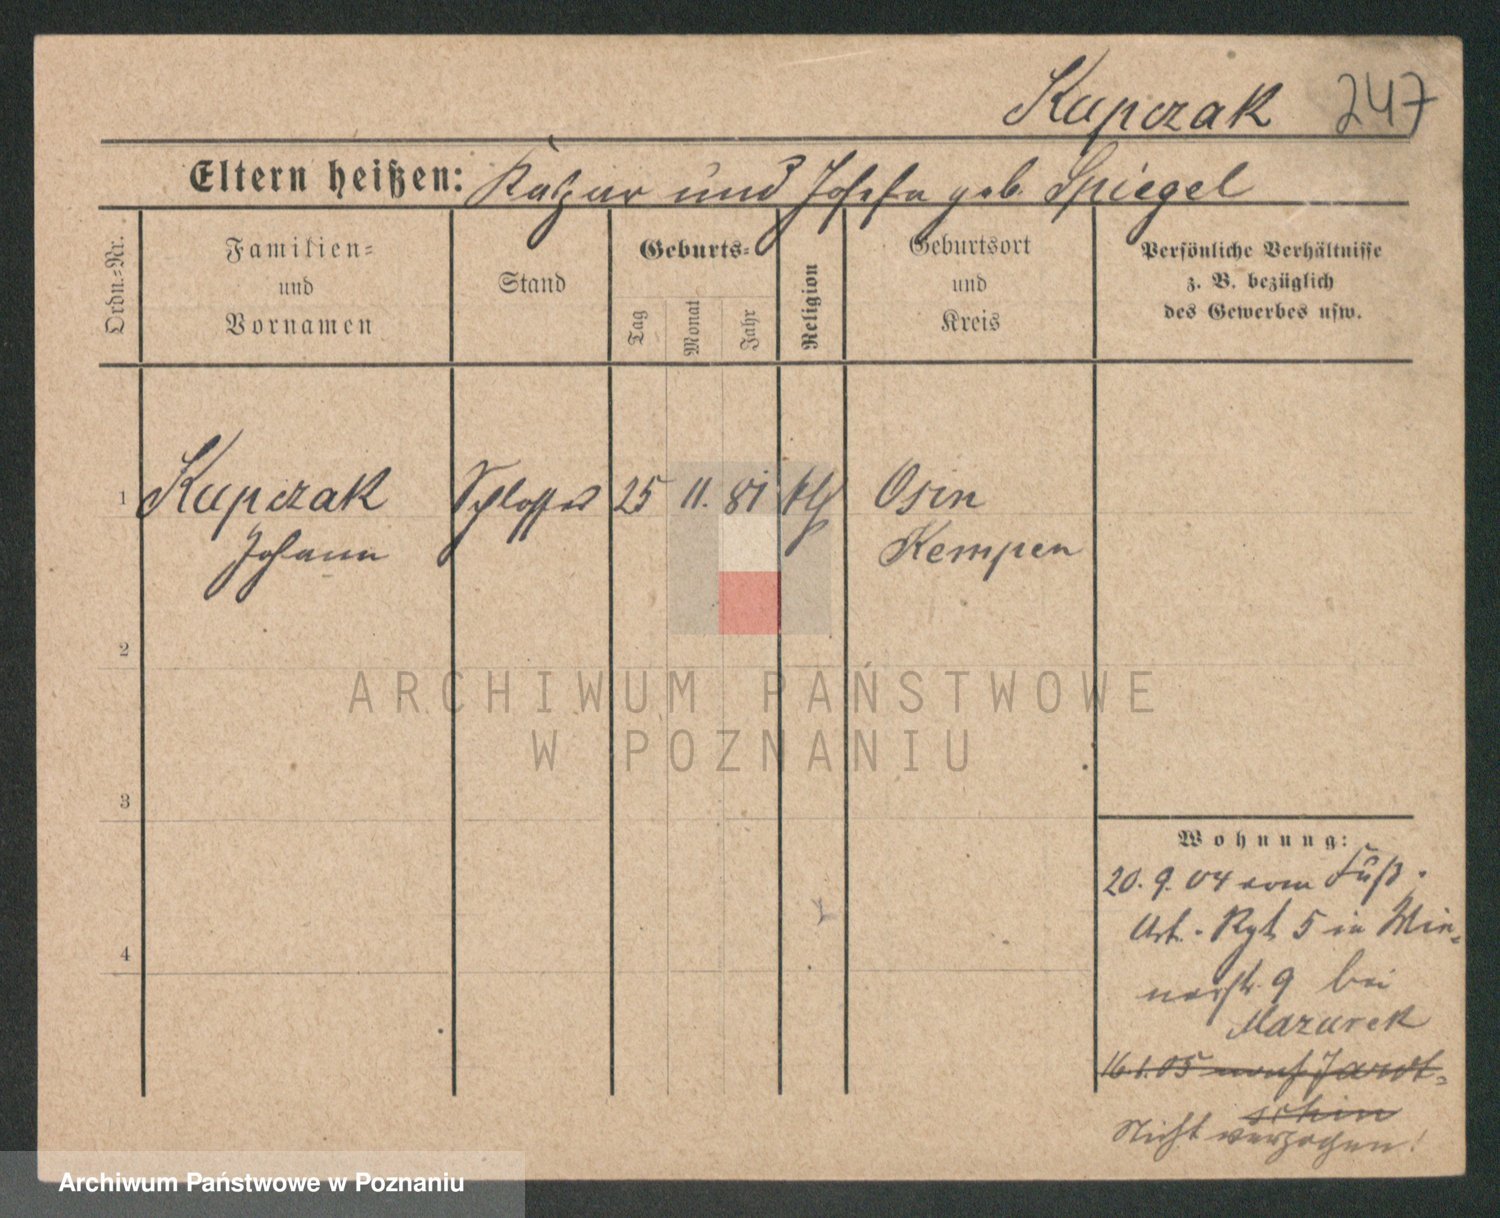 Kupczak 247
Eltern heißen: Kaspar und Josefa geb. Spiegel
Ordn.=Nr.
Familien=
und
Vornamen
Stand
Geburts=
Tag
Monat
Jahr
Religion
Geburtsort
und
Kreis
Persönliche Verhältnisse
z. B. bezüglich
des Gewerbes usw.
1 Kupczak Schlosser 25 11. 81 kth Osin
Johann Kempen
2
3
4
Wohnung:
20. 9. 04 vom Fuß.
Art. - Rgt. 5 in
9 bei
Mazurek
16.1.05 nach Jarot=
schin
Nicht verzogen!
ARCHIWUM PAŃSTWOWE
W POZNANIU
Archiwum Państwowe w Poznaniu